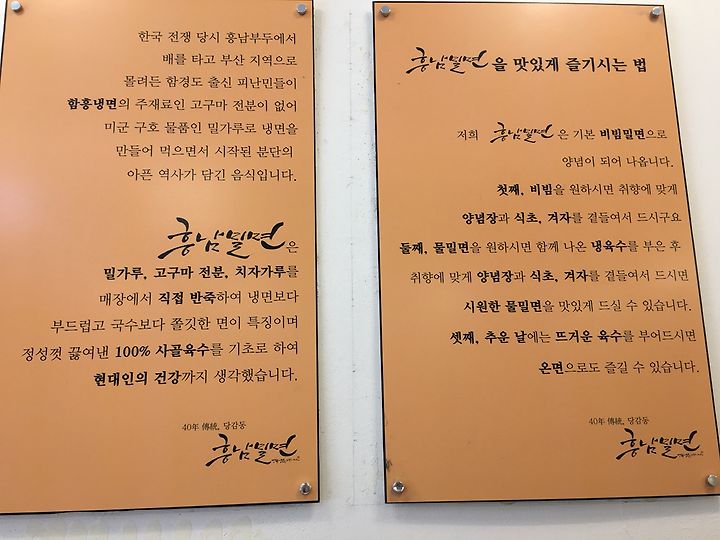 한국 전쟁 당시 흥남부두에서
배를 타고 부산 지역으로
몰려든 함경도 출신 피난민들이
함흥냉면의 주재료인 고구마 전분이 없어
미군 구호 물품인 밀가루로 냉면을
만들어 먹으면서 시작된 분단의
아픈 역사가 담긴 음식입니다.
흥남밀면은
밀가루, 고구마 전분, 치자가루를
매장에서 직접 반죽하여 냉면보다
부드럽고 국수보다 쫄깃한 면이 특징이며
정성껏 끓여낸 100% 사골육수를 기초로 하여
현대인의 건강까지 생각했습니다.
40年 傳統, 당감동
흥남밀면
흥남밀면을 맛있게 즐기시는 법
저희 흥남밀면은 기본 비빔밀면으로
양념이 되어 나옵니다.
첫째, 비빔을 원하시면 취향에 맞게
양념장과 식초, 겨자를 곁들여서 드시구요
둘째, 물밀면을 원하시면 함께 나온 냉육수를 부은 후
취향에 맞게 양념장과 식초, 겨자를 곁들여서 드시면
시원한 물밀면을 맛있게 드실 수 있습니다.
셋째, 추운 날에는 뜨거운 육수를 부어드시면
온면으로도 즐길 수 있습니다.
40年 傳統, 당감동
흥남밀면